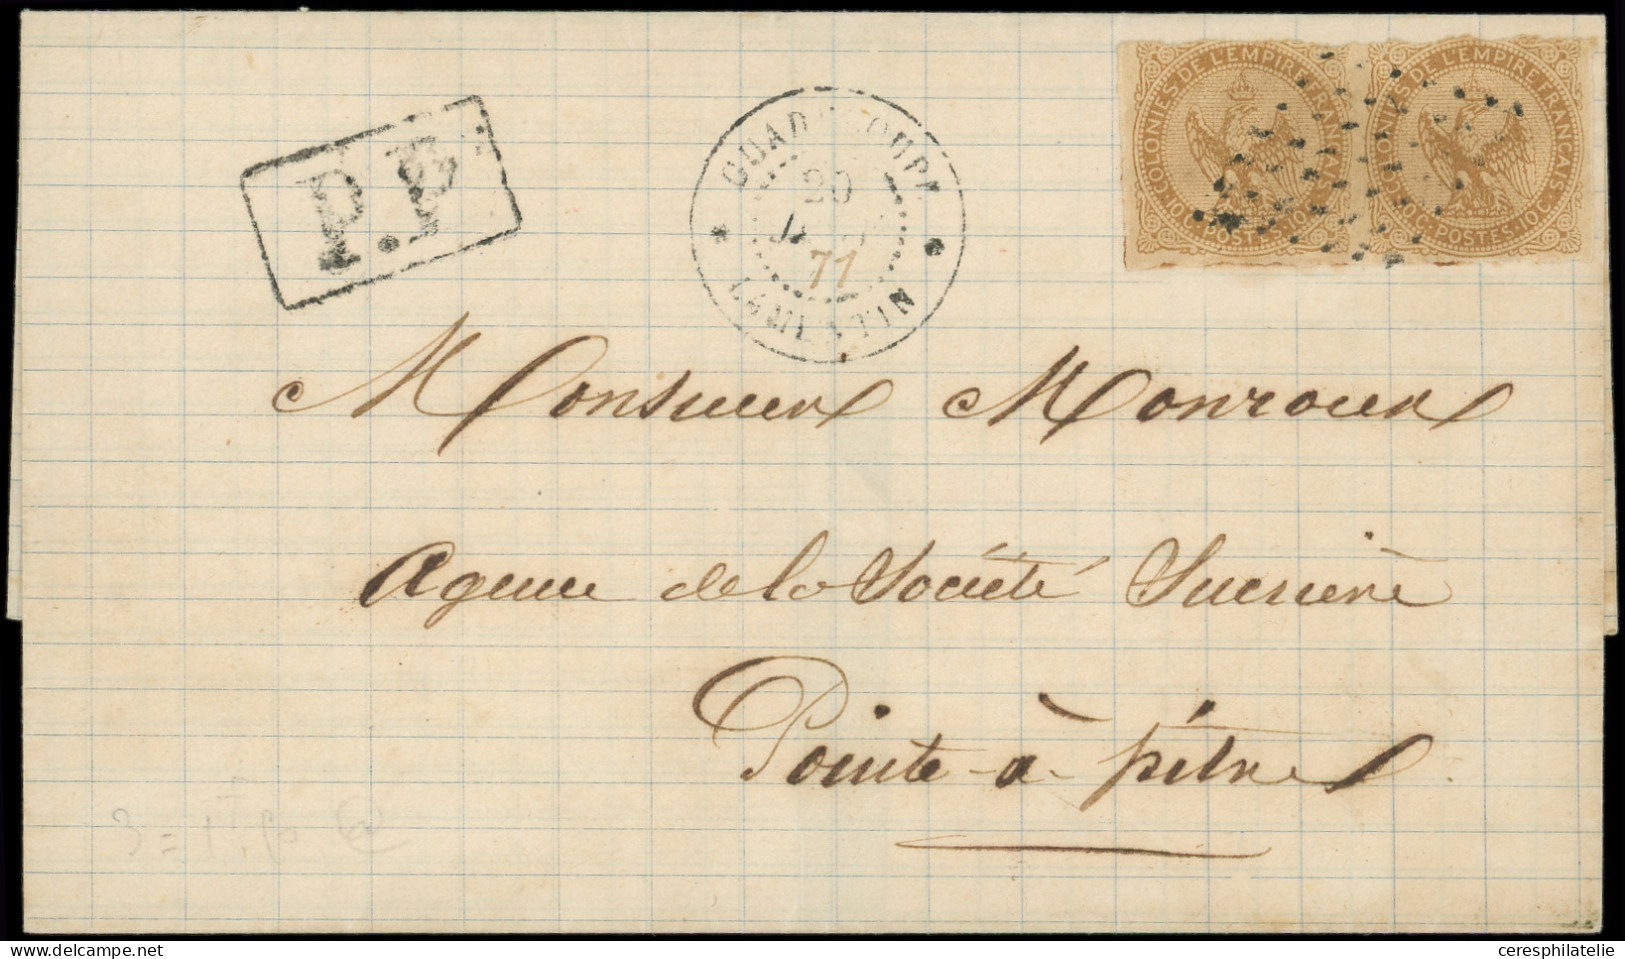 COLONIES DE L'EMPIRE FRANÇAIS
10C. POSTES. 10C.
COLONIES DE L'EMPIRE FRANÇAIS
10C. POSTES. 10C.
P.P.
GUADELOUPE
20
71
Monsieur Monroux
Agence de la Société Sucrière
Pointe-à-pître
ceresphilatelie